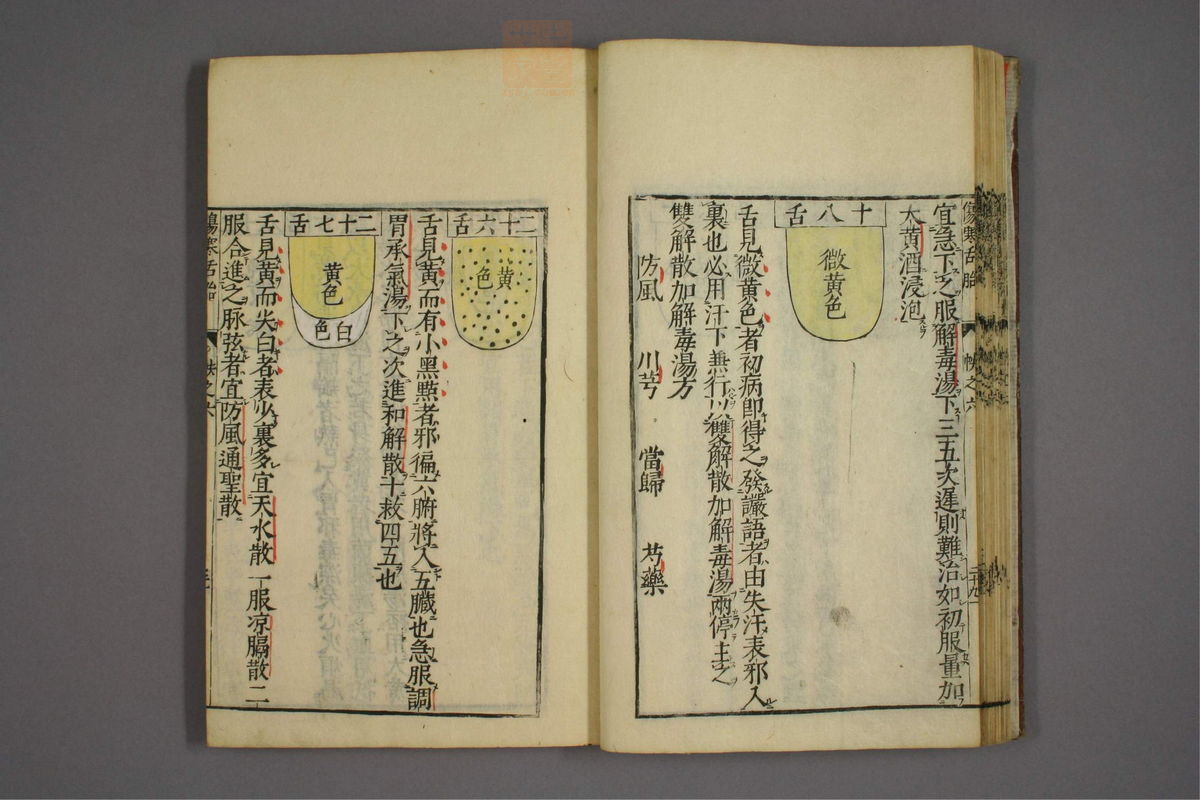 宜急下之服解毒湯下三五次遲則難治如初服量加
大黄酒浸泡
十八舌
微黄色
舌見微黄色者初病即得之發讝語者由失汗表邪入
裏也必用汗下兼行以雙解散加解毒湯兩停主之
雙解散加解毒湯方
防風 川芎 當歸 芍藥
二十六舌
黄色
舌見黄而有小黑點者邪徧六腑將入五臓也急服調
胃承氣湯下之次進和解散十救四五也
二十七舌
黄色
白色
舌見黄而尖白者表少裏多宜天水散一服凉膈散二
服合進之脉弦者宜防風通聖散